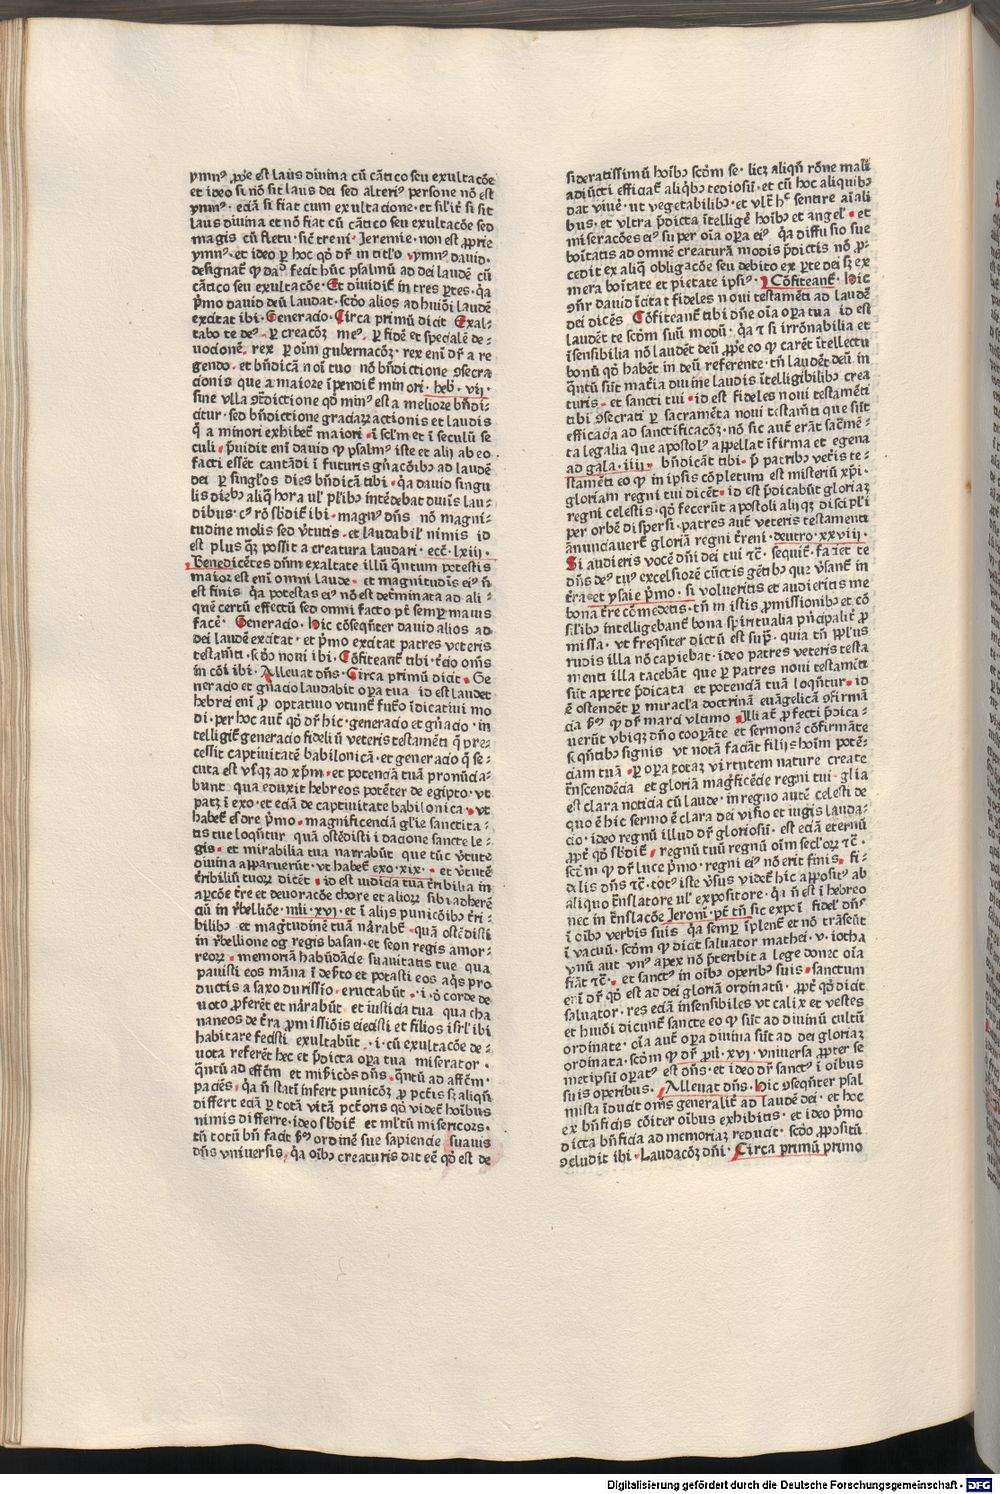 ymnꝰ ꝓpͥe est laus diuina cū cātico seu exultacōe
et ideo si nō sit laus dei sed alteriꝰ persone nō est
ymnꝰ· eciā si fiat cum exultacione· et sil'it̄ si sit
laus diuina et nō fiat cū cātico seu exultacōe sed
magis cū fletu· sic̄ treni· Jeremie· non est ꝓprie
ymnꝰ· et ideo ꝑ hoc qď dr̄ in titl'o ymnꝰ dauid·
designat̄ ꝙ dauid fecit hūc psalmū ad dei laudē cū
cātico seu exultacōe· Et diuidit̄ in tres ꝑtes· qͣ
pͥmo dauid deū laudat· scďo alios ad huiōi laudē
excitat ibi· Generacio· Circa primū dicit Exal-
tabo te deꝰ ꝑ creacōꝫ meꝰ ꝑ fidē et specialē de-
uocionē rex ꝑ oīm gubernacōꝫ· rex eni dr̄ a re
gendo· et bn̄dicā noī tuo nō bn̄dictione ꝯsecra
cionis que a maiore īpendit̄ minori· heb· vij·
sine vlla ꝯtr̄dictione qď minꝰ est a meliore bn̄di-
citur· sed bn̄dictione graciaꝝ actionis et laudis
q̄ a minori exhibet̄ maiori· ī scl'm et ī seculū se
culi· p̄uidit eni dauid ꝙ psalmꝰ iste et alij ab eo
facti essēt cantādi ī futuris gn̄acōibꝰ ad laudē
dei ꝑ singl'os dies bn̄dicā tibi· qͣ dauid singu
lis diebꝰ aliqͣ hora ul' pl'ibꝰ intēdebat diuīs lau-
dibus· cꝰ rō sƀdit̄ ibi· magnꝰ dn̄s nō magni-
tudine molis sed v̄tutis· et laudabil' nimis id
est plus qͣꝫ possit a creatura laudari· ecc̄· lxiij·
Benedicētes dn̄m exaltate illū qͣntum potestis
maior est eni omni laude· et magnitudīs eiꝰ n̄
est finis qͣ potestas eiꝰ nō est det̄minata ad ali-
quē certū effectū sed omni facto pt̄ semꝑ maius
facē· Generacio· Hic cōseqn̄ter dauid alios ad
dei laudē excitat· et pͥmo excitat patres veteris
testam̄ti· scďo noui ibi· Cōfiteant̄ tibi· tͥcio om̄s
in cōi ibi· Alleuat dn̄s· Circa primū dicit· Ge
neracio et gn̄acio laudabit oꝑa tua id est laudet
hebrei eni ꝓ optatiuo vtunt̄ futͦo īdicatiui mo
di· per hoc aut̄ qď dr̄ hic· generacio et gn̄acio· in
telligit̄ generacio fideliū veteris testamēti q̄ pre-
cessit captiuitatē babilonicā· et generacio q̄ se-
cuta est vsqꝫ ad xp̄m· et potenciā tuā pronūcia-
bunt qua eduxit hebreos potēter de egipto· vt
patꝫ ī exo· et eciā de captiuitate babilonica· vt
habet̄ esdre pͥmo· magnificenciā gl'ie sanctita-
tis tue loqn̄tur quā ostēdisti ī dacione sancte le-
gis· et mirabilia tua narrabūt que tūc v̄tute
diuina apparuerūt· vt habet̄ exo· xix·· et v̄tutē
t̄ribiliū tuoꝝ dicēt· id est iudicia tua t̄ribilia in
aꝑcōe t̄re et deuoracōe chore et alioꝝ sibi adherē
ciū in r̄bellōe· nūi· xvj· et ī alijs punicōibꝰ t̄ri-
bilibꝰ et magͥtudinē tuā nārabt̄· quā ostēdisti
in r̄bellione og regis basan· et seon regis amor-
reoꝝ· memoriā habūdācie suauitatis tue qua
pauisti eos māna ī deƀto et potasti eos aqͥs pro
ductis a saxo durissīo· eructabūt·· i· ꝺ corde de
uoto ꝓferēt et nārabūt et iusticia tua qua cha
naneos de t̄ra ꝓmissiōis eiecisti et filios isrl' ibi
habitare fecisti exultabūt·· i· cū exultacōe de-
uota referēt hec et p̄dicta oꝑa tua miserator·
qͣntū ad effc̄m et mīƀicōs dn̄s· qͣntū ad affc̄m·
paciēs· qͣ n̄ stati infert punicōꝫ ꝓ pctī̄s sꝫ aliqn̄
differt eciā ꝑ totā vitā pct̄oris qď videt̄ hoībus
nimis differre· ideo sƀdit̄ et ml'tū misericors·
tn̄ totū bn̄ facit ẜm ordinē sue sapiencie suauis
dn̄s vniuersis qͣ oībꝰ creaturis dat eē qď est de
sideratissimū hoībꝰ scďm se· licꝫ aliqn̄ rōne mali
adiūcti efficiat̄ aliqƀꝰ tediosū· et cū hoc aliquibꝰ
dat viuē· ut vegetabilibꝰ· et vlt̄ hͨ sentire aīali
bus· et vltra p̄dicta ītelligē hoībꝰ et angel'· et
miseracōes eiꝰ suꝑ oīa oꝑa eiꝰ qͣ diffusio sue
boītatis ad omnē creaturā modis p̄dictis nō ꝓ-
cedit ex aliqͣ obligacōe seu debito ex ꝑte dei sꝫ ex
mera boītate et pietate ipsiꝰ· Cōfiteant̄· Hic
ꝯn̄r dauid īcitat fideles noui testamēti ad laudē
dei dicēs Cōfiteant̄ tibi dn̄e oīa oꝑa tua id est
laudēt te scďm suū modū· qͣ ꞇ si irrōnabilia et
īsensibilia nō laudēt deū ꝓpͥe eo ꝙ carēt ītellectu
bonū qď habēt in deū referente· tn̄ laudēt deū in
qͣntū sūt mat̄ia diuine laudis ītelligibilibꝰ crea
turis· et sancti tui· id est fideles noui testamēti
tibi ꝯsecrati ꝑ sacramēta noui testam̄ti que sūt
efficacia ad sanctificacōꝫ· nō sic aut̄ erāt sacm̄ē-
ta legalia que apostolꝰ appellat īfirma et egena
ad gala· iiij· bn̄dicāt tibi· p̄ patribꝰ vet̄is te-
stamēti eo ꝙ in ipsis cōpletum est misteriū xp̄i·
gloriam regni tui dicēt· id est p̄dicabūt gloriaꝫ
regni celestis· qď fecerūt apostoli alijqꝫ discipl'i
per orbē dispersi· patres aut̄ veteris testamenti
ānunciauerūt gloriā regni t̄reni· deutro· xxviij·
Si audieris vocē dn̄i dei tui ꞇc̄· sequit̄· faciet te
dn̄s deꝰ tuꝰ excelsiorē cūctis gētibꝰ que v̄sant̄ in
t̄ra· et ysaie pͥmo· si volueritis et audieritis me
bona t̄re cōmedetis· tn̄ in istis ꝓmissionibꝰ et cō
sil'ibꝰ intelligebant̄ bona spiritualia pͥncipalit̄ ꝓ
missa· vt freqn̄ter dictū est supͣ· quia tn̄ ppl'us
rudis illa nō capiebat· ideo patres veteris testa
menti illa tacebāt que ꝑ patres noui testamēti
sūt aperte p̄dicata et potenciā tuā loqn̄tur· id
ē ostendēt ꝑ miracl'a doctrinā euāgelicā ꝯfirmā
cia ẜm ꝙ dr̄ marci vltimo Illi at̄ ꝓfecti p̄dica-
uerūt vbiqꝫ dn̄o cooꝑāte et sermonē cōfirmāte
seqn̄tibꝰ signis vt notā faciāt filijs hoīm potē-
ciam tuā ꝑ oꝑa totaꝫ virtutem nature create
t̄nscendēcia et gloriā magͥficēcie regni tui· gl'ia
est clara noticia cū laude· in regno autē celesti de
quo ē hic sermo ē clara dei visio et iugis lauda-
cio· ideo regnū illud dr̄ gloriosū· est eciā eternū
ꝓpt̄ qď sƀdit̄ regnū tuū regnū oīm secl'oꝝ ꞇc̄·
scďm ꝙ dr̄ luce pͥmo· regni eiꝰ nō erit finis· fi-
delis dn̄s ꞇc̄· totꝰ iste v̄sus videt̄ hic appositꝰ ab
aliquo t̄nslatore ul' expositore· qͣ n̄ est ī hebreo
nec in t̄nslacōe Jeronī· pt̄ tn̄ sic expōi fidel' dn̄s
ī oībꝰ verbis suis qͣ semꝑ īplent̄ et nō trāseūt
ī vacuū· scďm ꝙ dicit saluator mathei· v· iotha
vnū aut vnꝰ apex nō p̄teribit a lege donec oīa
fiāt ꞇc̄·· et sanctꝰ in oībꝰ operibꝰ suis· sanctum
eni dr̄ qď est ad dei gloriā ordinatū· ꝓpt̄ qď dicit
saluator· res eciā insensibiles vt calix et vestes
et huiōi dicunt̄ sancte eo ꝙ sūt ad diuinū cultū
ordinate· oīa aut̄ oꝑa diuina sūt ad dei gloriaꝫ
ordinata· scďm ꝙ dr̄ ꝓu· xvj· vniuersa ꝓpter se
metipsū oꝑatꝰ est dn̄s· et ideo dr̄ sanctꝰ ī oībus
suis operibus· Alleuat dn̄s· Hic ꝯseqn̄ter psal
mista īducit om̄s generalit̄ ad laudē dei· et hoc
ex bn̄ficijs cōiter oībus exhibitis· et ideo pͥmo
dicta bn̄ficia ad memoriaꝫ reducit· scďo ꝓpositū
ꝯcludit ibi· Laudacōꝫ dn̄i· Circa primū primo
Digitalisierung gefördert durch die Deutsche Forschungsgemeinschaft - DFG